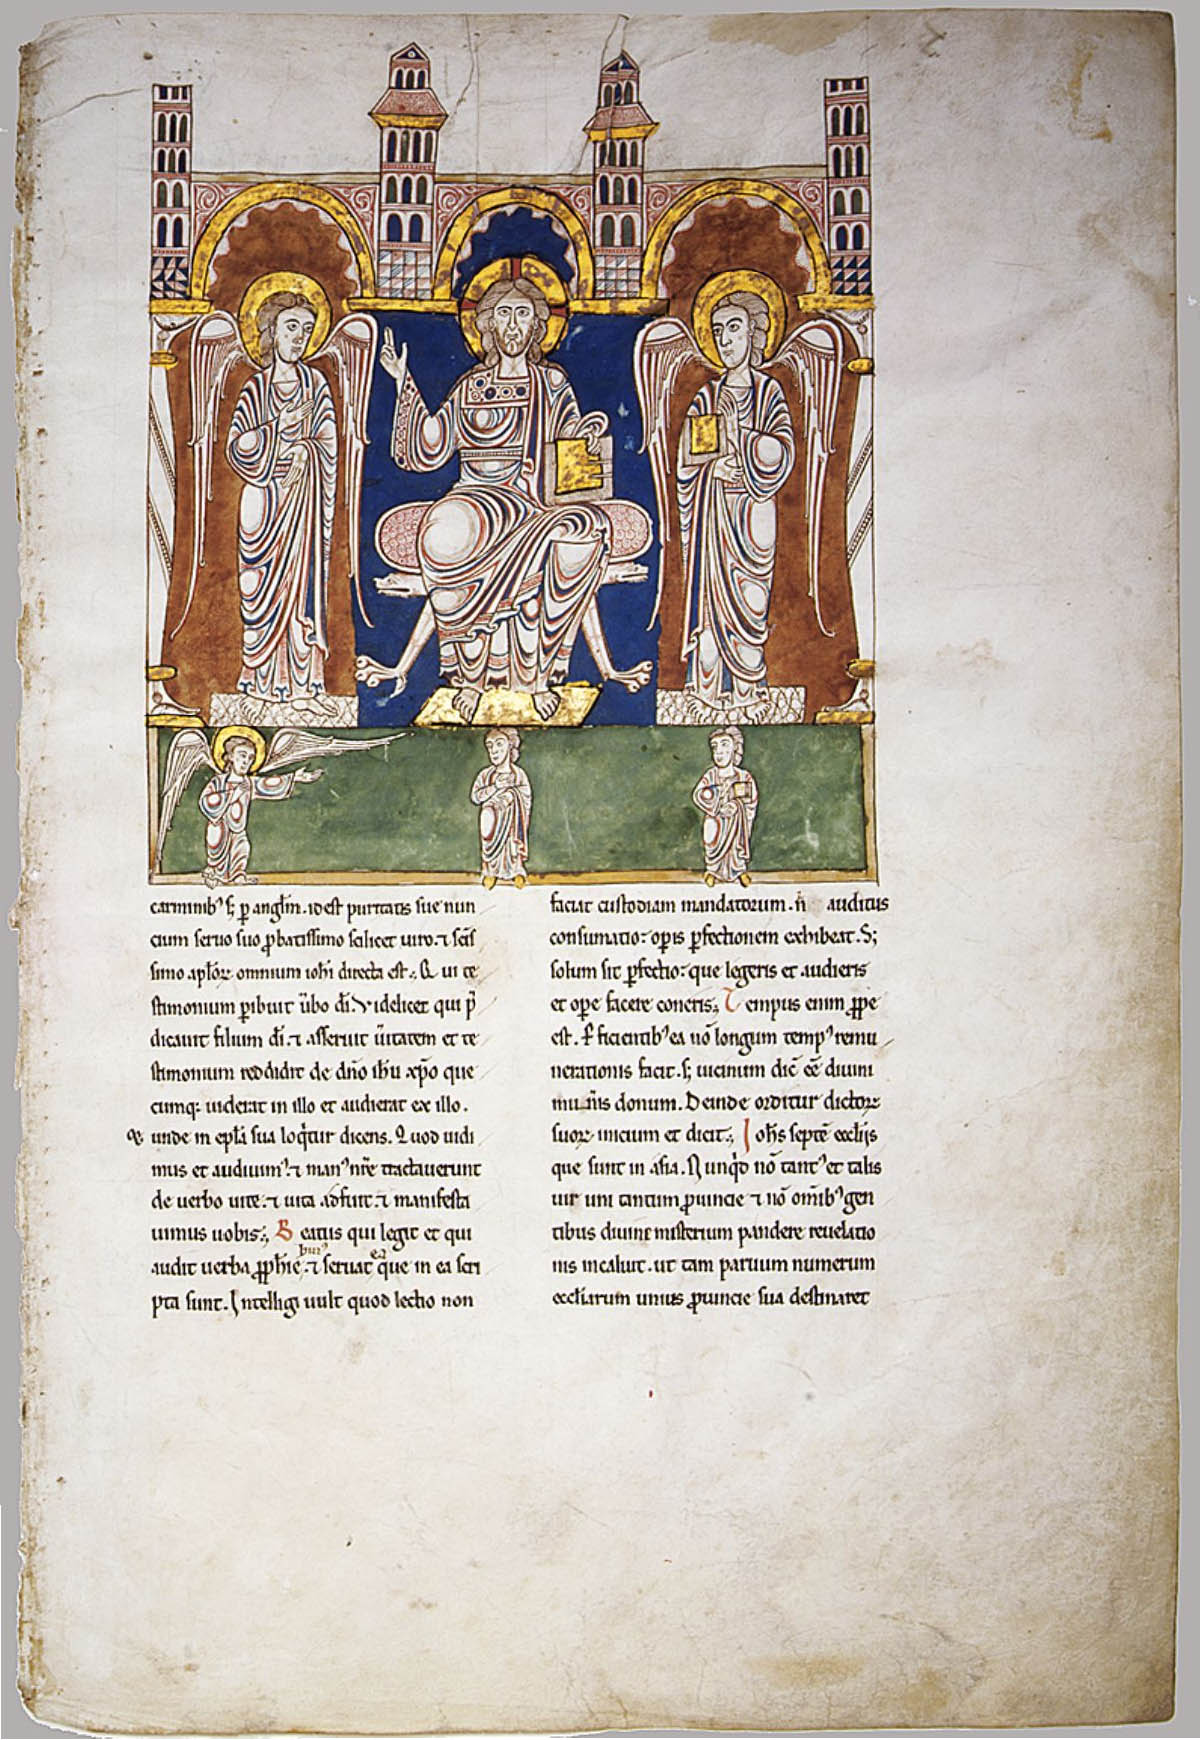 carminib⁹ s; ꝑ angłm. idest puritatis sue nun
cium seruo suo ꝓbatissimo scilicet uiro. ⁊ scīs
simo apłoꝝ omnium iohī directa est. ut te
stimonium ꝑibuit ūbo dī. Videlicet qui p̄
dicauit filium dī. ⁊ asseruit ūitatem et te
stimonium reddidit de dn̄o ihū xp̄o que
cumq: uiderat in illo et audierat ex illo.
unde in epła sua loq̇tur dicens. Quod uidi
mus et audiuim⁹. ⁊ man⁹ nr̄e tractauerunt
de uerbo uite. ⁊ uita adfuit. ⁊ manifesta
uimus uobis. Beatus qui legit et qui
audit uerba ꝓph̄ie hui⁹ ⁊ seruat ea que in ea scri
pta sunt. Intelligi uult quod lectio non
faciat custodiam mandatorum. n̄ auditus
consumatio: opis ꝑfectionem exhibeat. S;
solum sit ꝑfectio: que legeris et audieris
et ope facere coneris; Tempus enim ꝓpe
est. ꝑficientib⁹ ea nō longum temp⁹ remu
nerationis facit. s; uicinum dic̄ eē diuini
mun̄is donum. Deinde orditur dictoꝝ
suoꝝ inicium et dicit. Iohs septē ecclijs
que sunt in asia. Nunqd nō tant⁹ et talis
uir uni tantum ꝓuincie ⁊ nō om̄ib⁹ gen
tibus diuine misterium pandere reuelatio
nis incaluit. ut tam paruum numerum
eccłiarum unius ꝓuincie sua destinaret